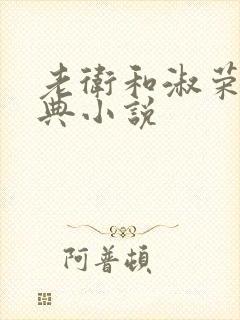 老衛和淑荣
典小説
阿普頓